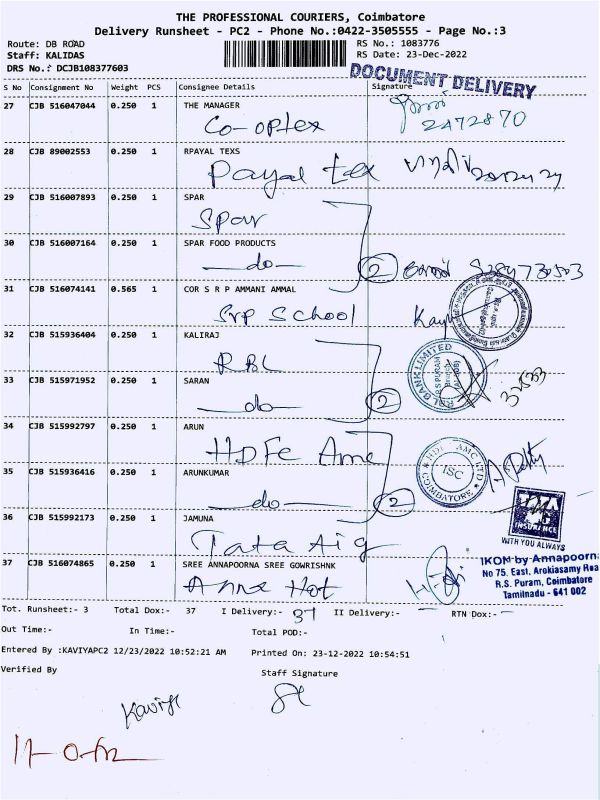 THE PROFESSIONAL COURIERS, Coimbatore
Delivery Runsheet - PC2 - Phone No.:0422-3505555 - Page No.:3
Route: DB ROAD
Staff: KALIDAS
DRS No.: DCJB108377603
RS No.: 1083776
RS Date: 23-Dec-2022
DOCUMENT DELIVERY
S No Consignment No Weight PCS Consignee Details Signature
27 CJB 516047044 0.250 1 THE MANAGER
Co-optex 2472870
28 CJB 89002553 0.250 1 RPAYAL TEXS
Payal tex
29 CJB 516007893 0.250 1 SPAR
Spar
30 CJB 516007164 0.250 1 SPAR FOOD PRODUCTS
—do— 2
31 CJB 516074141 0.565 1 COR S R P AMMANI AMMAL
Srp School
32 CJB 515936404 0.250 1 KALIRAJ
RBL
RBL BANK LIMITED
R S PURAM
33 CJB 515971952 0.250 1 SARAN
—do— 2
34 CJB 515992797 0.250 1 ARUN
HDFC Amc
HDFC AMC LTD
ISC
COIMBATORE
35 CJB 515936416 0.250 1 ARUNKUMAR
—do— 2
36 CJB 515992173 0.250 1 JAMUNA
Tata Aig
INSURANCE
WITH YOU ALWAYS
37 CJB 516074865 0.250 1 SREE ANNAPOORNA SREE GOWRISHNK
Anna Hot
IKON by Annapoorn
No 75, East. Arokiasamy Roa
R.S. Puram, Coimbatore
Tamilnadu - 641 002
Tot. Runsheet:- 3 Total Dox:- 37 I Delivery:- 37 II Delivery:- — RTN Dox:- —
Out Time:- In Time:- Total POD:-
Entered By :KAVIYAPC2 12/23/2022 10:52:21 AM Printed On: 23-12-2022 10:54:51
Verified By Staff Signature
Kaviya